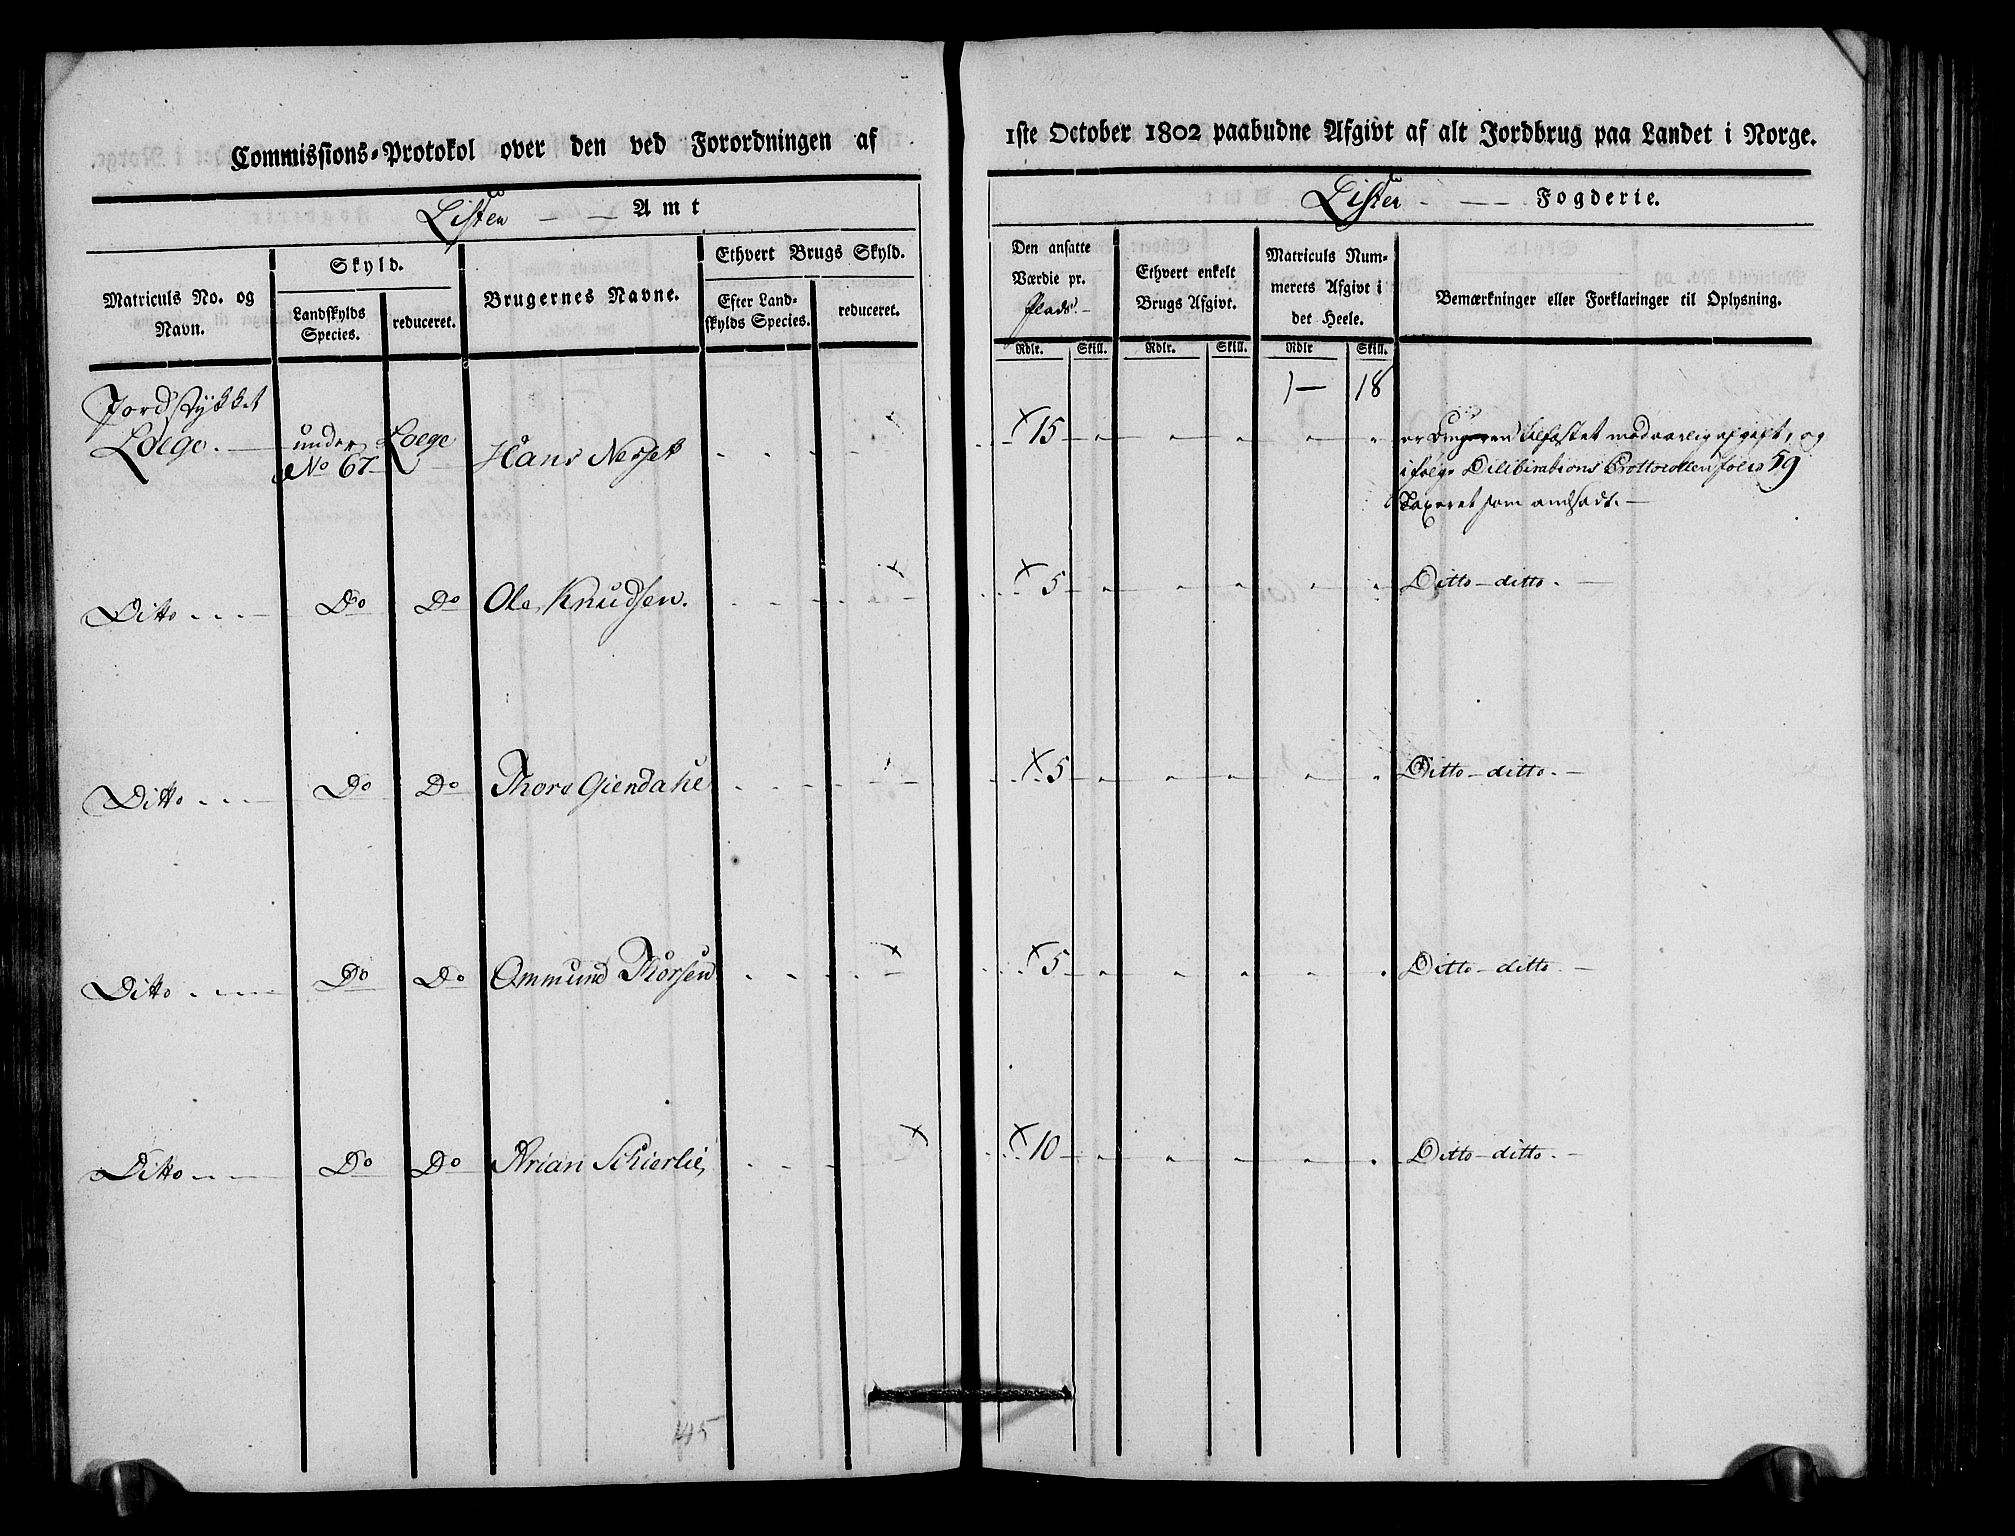 Commissions-Protokol over den ved Forordningen af
Listen Amt
Matriculs No. og Navn.
Skyld.
Landskylds Species.
reduceret.
Brugernes Navne.
Ethvert Brugs Skyld.
Efter Landskylds Species.
reduceret.
Jordstykket
Loege. under Loege
No 67 Hans Nesset
Ditto Do Do Ole Knudsen.
Ditto Do Do Thore Giendahl
Ditto Do Do Ommund Thorsen
Ditto Do Do Arian Schierlie,
145
1ste October 1802 paabudne Afgivt af alt Jordbrug paa Landet i Norge.
Lister Fogderie.
Den ansatte Værdie pr. Plads.
Ethvert enkelt Brugs Afgivt.
Matriculs Nummerets Afgivt i det Heele.
Bemærkninger eller Forklaringer til Oplysning.
Rdlr. Skill. Rdlr. Skill. Rdlr Skill.
1 18
× 15 er Brugeren tilfæstet mod aarlig afgift, og
i følge Deliberations Prottocollen folio 59
Taxeret som andsadt.
× 5 Ditto - ditto.
× 5 Ditto - ditto.
× 5 Ditto - ditto.
× 10 Ditto - ditto.